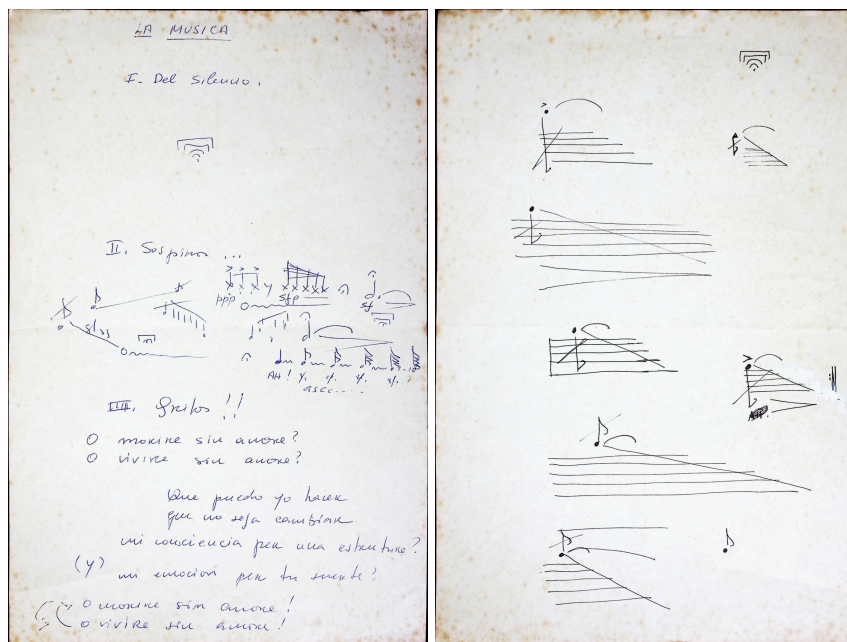 LA MUSICA
I. Del silencio.
II. Sospiros ...
ppp sfp sf
gliss
AH!
III. Gritos!!
O morire sin amore?
O vivire sin amore?
Que puedo yo hacer
que no seja cambiar
mi consciencia per una estrutura?
(y) mi emocion per tu mente?
O morire sin amore!
O vivire sin amore!